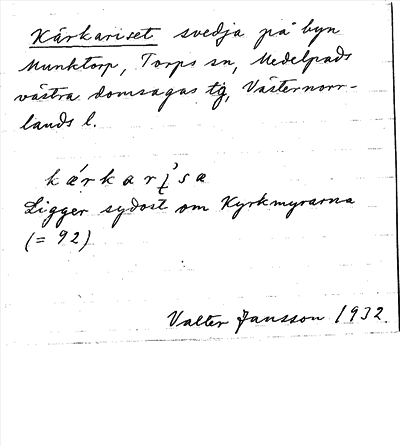 Kärkariset svedja på byn
Munktorp, Torps sn, Medelpads
västra domsagas tg, Västernorr-
lands l.
kærkarı̨́sæ
Ligger sydost om Kyrkmyrarna
(= 92)
Valter Jansson 1932.